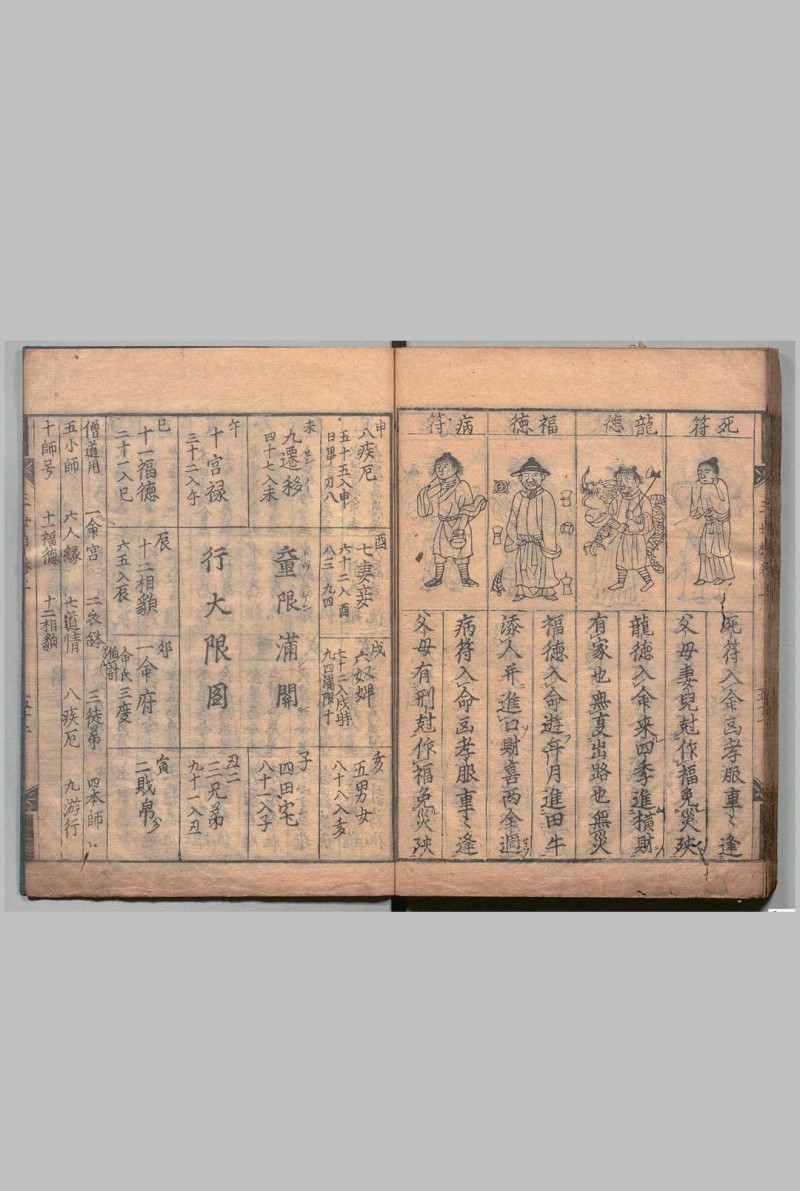 死符
龍德
福德
病符
死符入命凶孝服重々逢
父母妻兒尅作福免災殃
龍德入命來四季進橫財
有家也無憂出路也無災
福德入命遊年月進田牛
添人并進口財喜兩全週
病符入命凶孝服重々逢
父母有刑尅作福免災殃
申
八疾厄
五十五入申
酉
七妻妾
六十二入酉
戌
六奴婢
七十二入戌時
亥
五男女
八十八入亥
未
九遷移
四十七入未
童限滿開
子
四田宅
八十一入子
午
十官禄
三十二入午
行大限圖
丑
三兄弟
九十一入丑
巳
十一福德
二十一入巳
辰
十二相貌
六五入辰
卯
一命府
寅
二財帛
僧道用
一命宮
二衣鉢
三徒弟
四本師
五小師
六人緣
七道情
八疾厄
九游行
十師号
十一福德
十二相貌